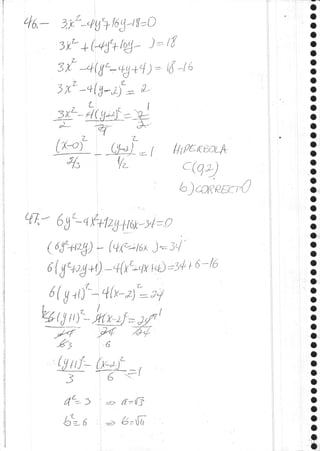 46.- 3x²-4y²+16y-18=0
3x²+(-4y²+16y- )=18
3x²-4(y²-4y+4)=18-16
3x²-4(y-2)²=2
3x²/2 - 4(y-2)²/2 = 2/2
(x-0)²/2/3 - (y-2)²/1/2 = 1 HIPERBOLA
C(0,2)
b) CORRECTO
47.- 6y²-4x²+12y+16x-34=0
(6y²+12y) - (4x²-16x )=34
6(y²+2y+1)-4(x²-4x+4)=34+6-16
6(y+1)²-4(x-2)²=24
6(y+1)²/24 - 4(x-2)²/24 = 24/24
(y+1)²/3 - (x-2)²/6 = 1
a²=3 => a=√3
b²=6 => b=√6